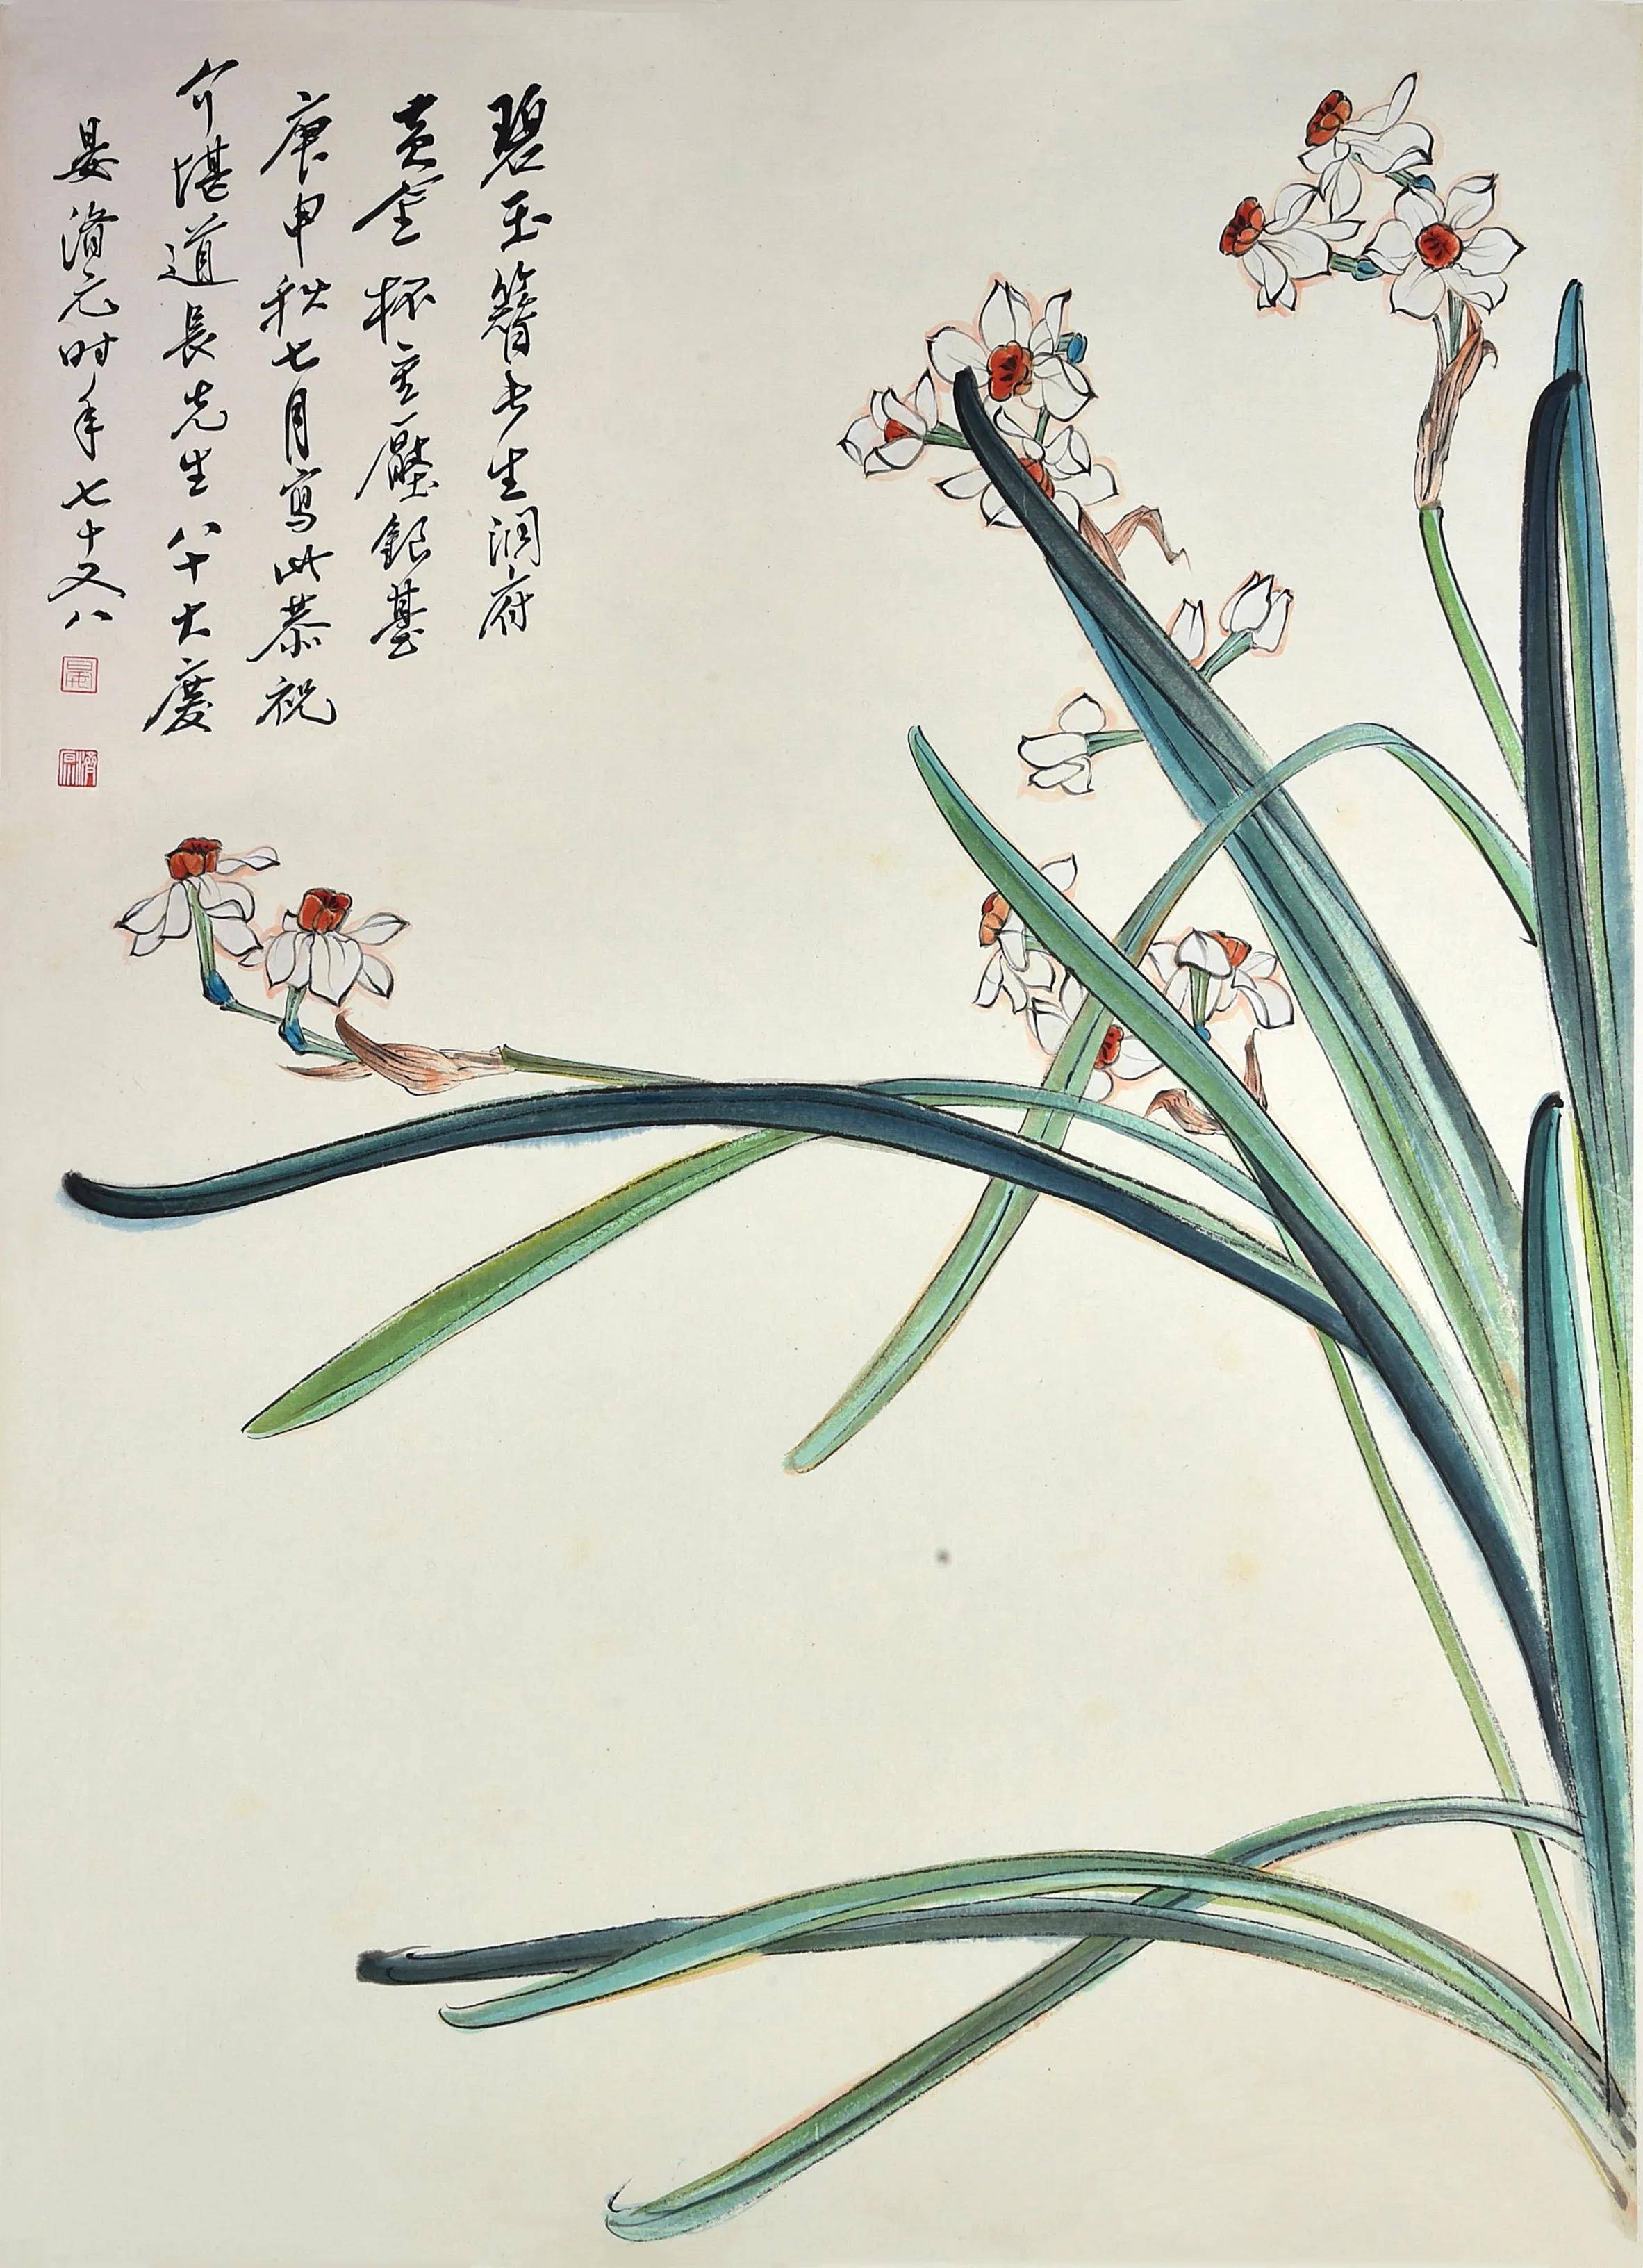 碧玉簪長生洞府
黄金杯重壓銀臺
庚申秋七月寫此恭祝
介堪道長先生八十大慶
晏濟元时年七十又八
晏
濟元